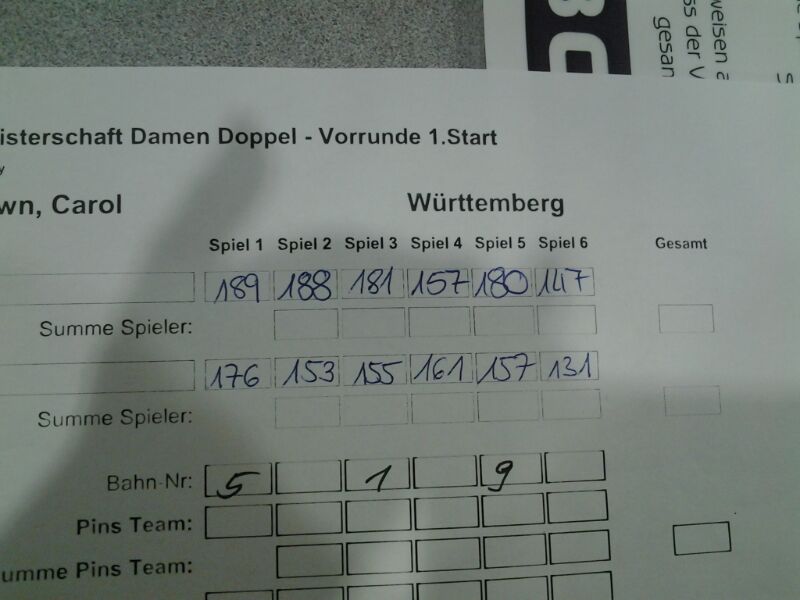 weisen a
ss der V
gesan
isterschaft Damen Doppel - Vorrunde 1.Start
wn, Carol Württemberg
Spiel 1 Spiel 2 Spiel 3 Spiel 4 Spiel 5 Spiel 6 Gesamt
189 188 181 157 180 147
Summe Spieler:
176 153 155 161 157 131
Summe Spieler:
Bahn-Nr: 5 1 9
Pins Team:
umme Pins Team: